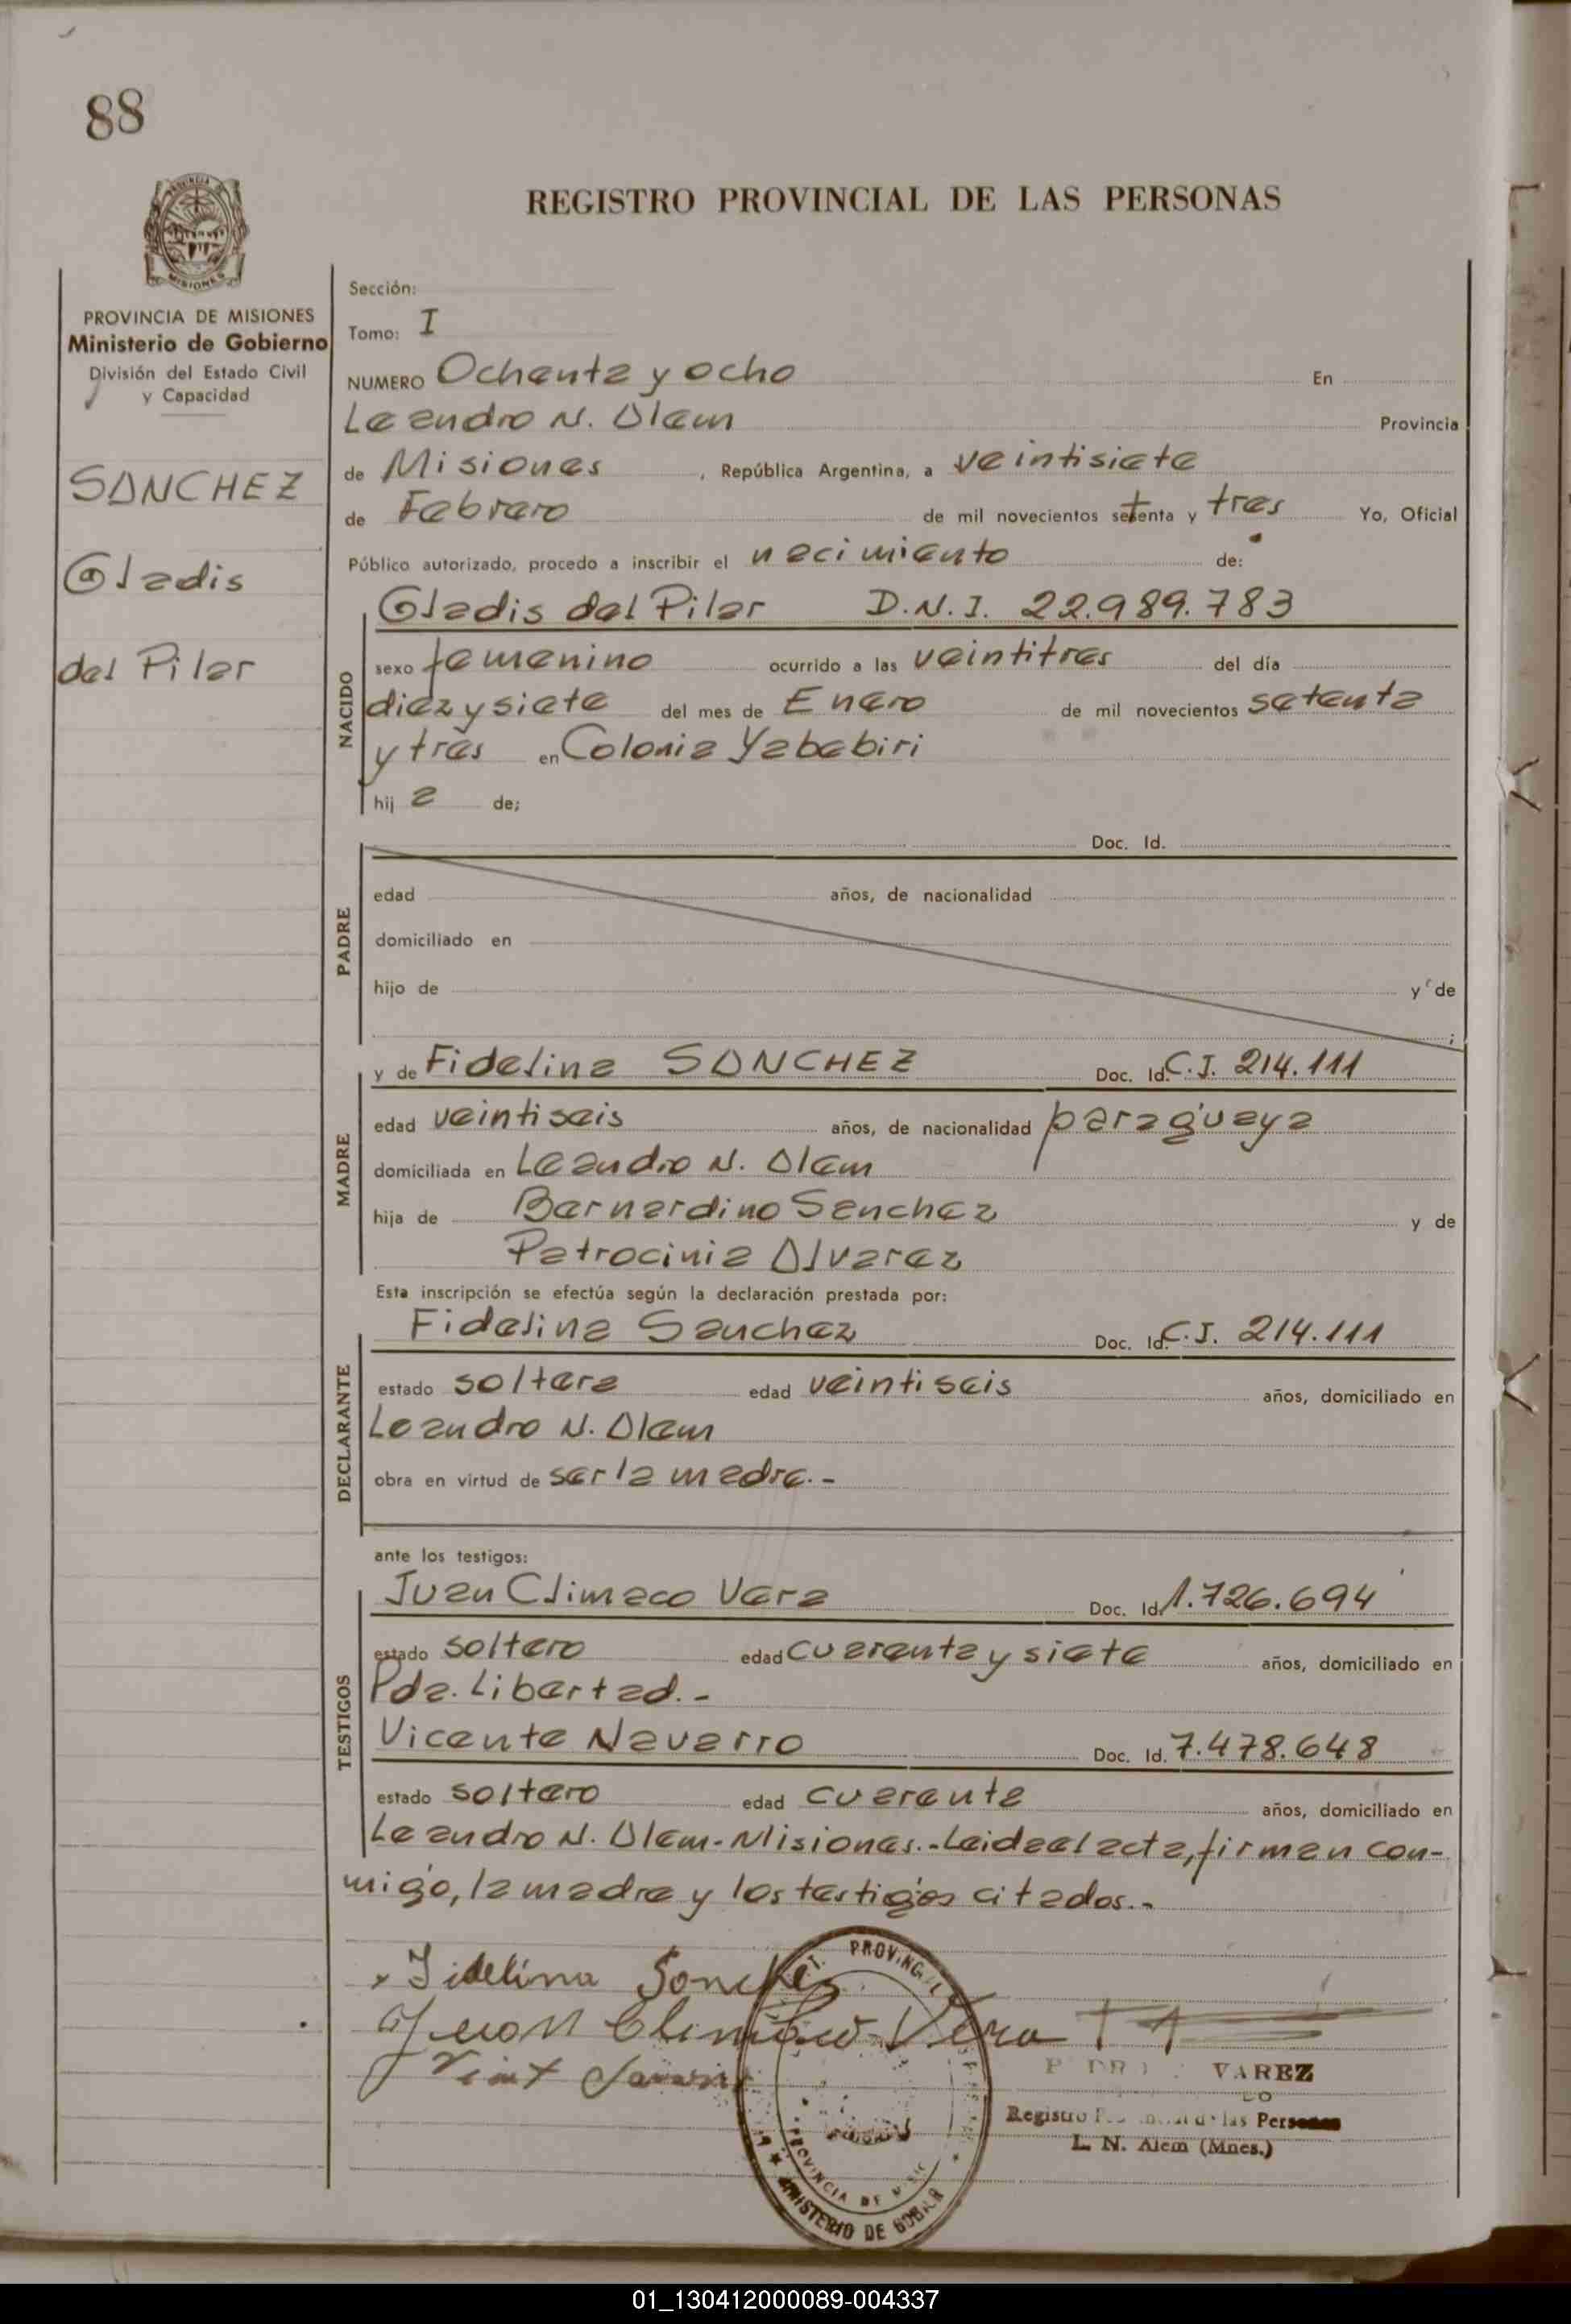 88
REGISTRO PROVINCIAL DE LAS PERSONAS
PROVINCIA DE MISIONES
Ministerio de Gobierno
División del Estado Civil
y Capacidad
SANCHEZ
Gladis
del Pilar
Sección:
Tomo: I
NUMERO Ochenta y ocho En
Leandro N. Alem Provincia
de Misiones , República Argentina, a veintisiete
de Febrero de mil novecientos setenta y tres Yo, Oficial
Público autorizado, procedo a inscribir el nacimiento de:
NACIDO
Gladis del Pilar D.N.I. 22.989.783
sexo femenino ocurrido a las veintitres del día
diez y siete del mes de Enero de mil novecientos setenta
y tres en Colonia Yabebiri
hij a de;
PADRE
Doc. Id.
edad años, de nacionalidad
domiciliado en
hijo de y de
;
MADRE
y de Fidelina SANCHEZ Doc. Id. C.I. 214.111
edad veintiseis años, de nacionalidad paraguaya
domiciliada en Leandro N. Alem
hija de Bernardino Sanchez y de
Patrocinia Alvarez
Esta inscripción se efectúa según la declaración prestada por:
DECLARANTE
Fidelina Sanchez Doc. Id. C.I. 214.111
estado soltera edad veintiseis años, domiciliado en
Leandro N. Alem
obra en virtud de ser la madre.-
ante los testigos:
TESTIGOS
Juan Climaco Vera Doc. Id. 1.726.694
estado soltero edad cuarenta y siete años, domiciliado en
Pda. Libertad.-
Vicente Navarro Doc. Id. 7.478.648
estado soltero edad cuarenta años, domiciliado en
Leandro N. Alem-Misiones.-Leida el acta, firman con-
migo, la madre y los testigos citados.-
Fidelina Sanchez
Juan Climaco Vera
VAREZ
Registro las Personas
L. N. Alem (Mnes.)
PROVINCIA DE
MINISTERIO DE
01_130412000089-004337